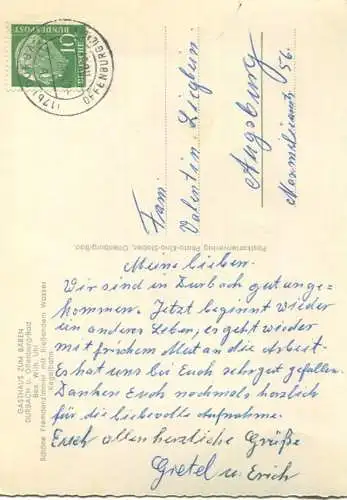 10
DEUTSCHE
BUNDESPOST
(17b) OFFENBURG
Fam.
Valentin Liegbein
Augsburg
Maximilianstr. 56.
Postkartenverlag Photo-King-Stober, Offenburg/Bad.
GASTHAUS ZUM BÄREN
DURBACH b. Offenburg/Bad
Bes.: Wilh. Uhl
Schöne Fremdenzimmer mit fließendem Wasser
Kegelbahn
Meine Lieben.
Wir sind in Durbach gut ange-
kommen. Jetzt beginnt wieder
ein anderes Leben, es geht wieder
mit frischem Mut an die Arbeit.
Es hat uns bei Euch sehr gut gefallen.
Danken Euch nochmals herzlich
für die liebevolle Aufnahme.
Euch allen herzliche Grüße
Gretel u. Erich